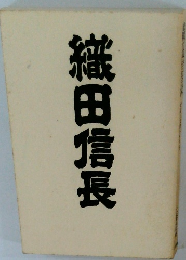 織田信長